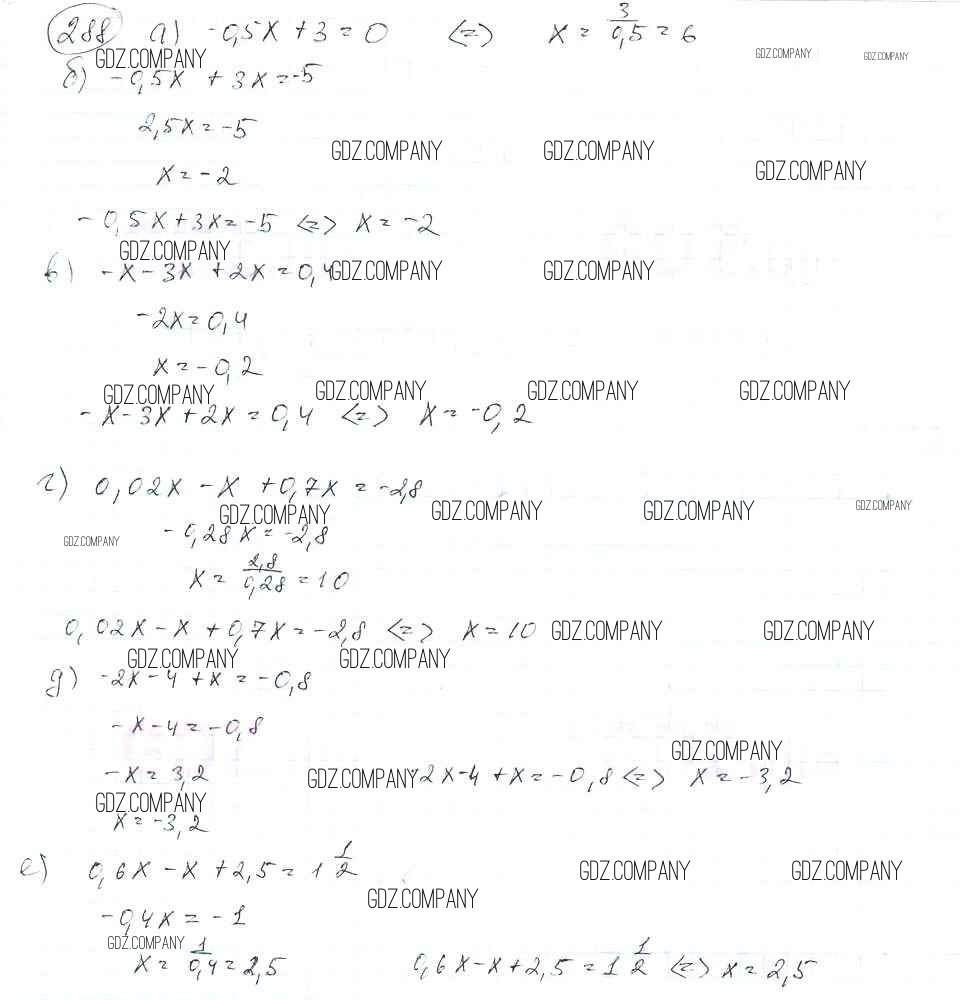 288 а) -0,5x + 3 = 0 <=> x = 3/0,5 = 6
GDZ.COMPANY GDZ.COMPANY GDZ.COMPANY
б) -0,5x + 3x = -5
2,5x = -5
GDZ.COMPANY GDZ.COMPANY GDZ.COMPANY
x = -2
-0,5x + 3x = -5 <=> x = -2
GDZ.COMPANY
в) -x - 3x + 2x = 0,4 GDZ.COMPANY GDZ.COMPANY
-2x = 0,4
x = -0,2
GDZ.COMPANY GDZ.COMPANY GDZ.COMPANY GDZ.COMPANY
-x - 3x + 2x = 0,4 <=> x = -0,2
г) 0,02x - x + 0,7x = -2,8
GDZ.COMPANY GDZ.COMPANY GDZ.COMPANY GDZ.COMPANY
-0,28x = -2,8
GDZ.COMPANY
x = 2,8/0,28 = 10
0,02x - x + 0,7x = -2,8 <=> x = 10 GDZ.COMPANY GDZ.COMPANY
GDZ.COMPANY GDZ.COMPANY
д) -2x - 4 + x = -0,8
-x - 4 = -0,8
GDZ.COMPANY
-x = 3,2 GDZ.COMPANY -2x - 4 + x = -0,8 <=> x = -3,2
GDZ.COMPANY
x = -3,2
е) 0,6x - x + 2,5 = 1 1/2 GDZ.COMPANY GDZ.COMPANY
GDZ.COMPANY
-0,4x = -1
GDZ.COMPANY
x = 1/0,4 = 2,5 0,6x - x + 2,5 = 1 1/2 <=> x = 2,5